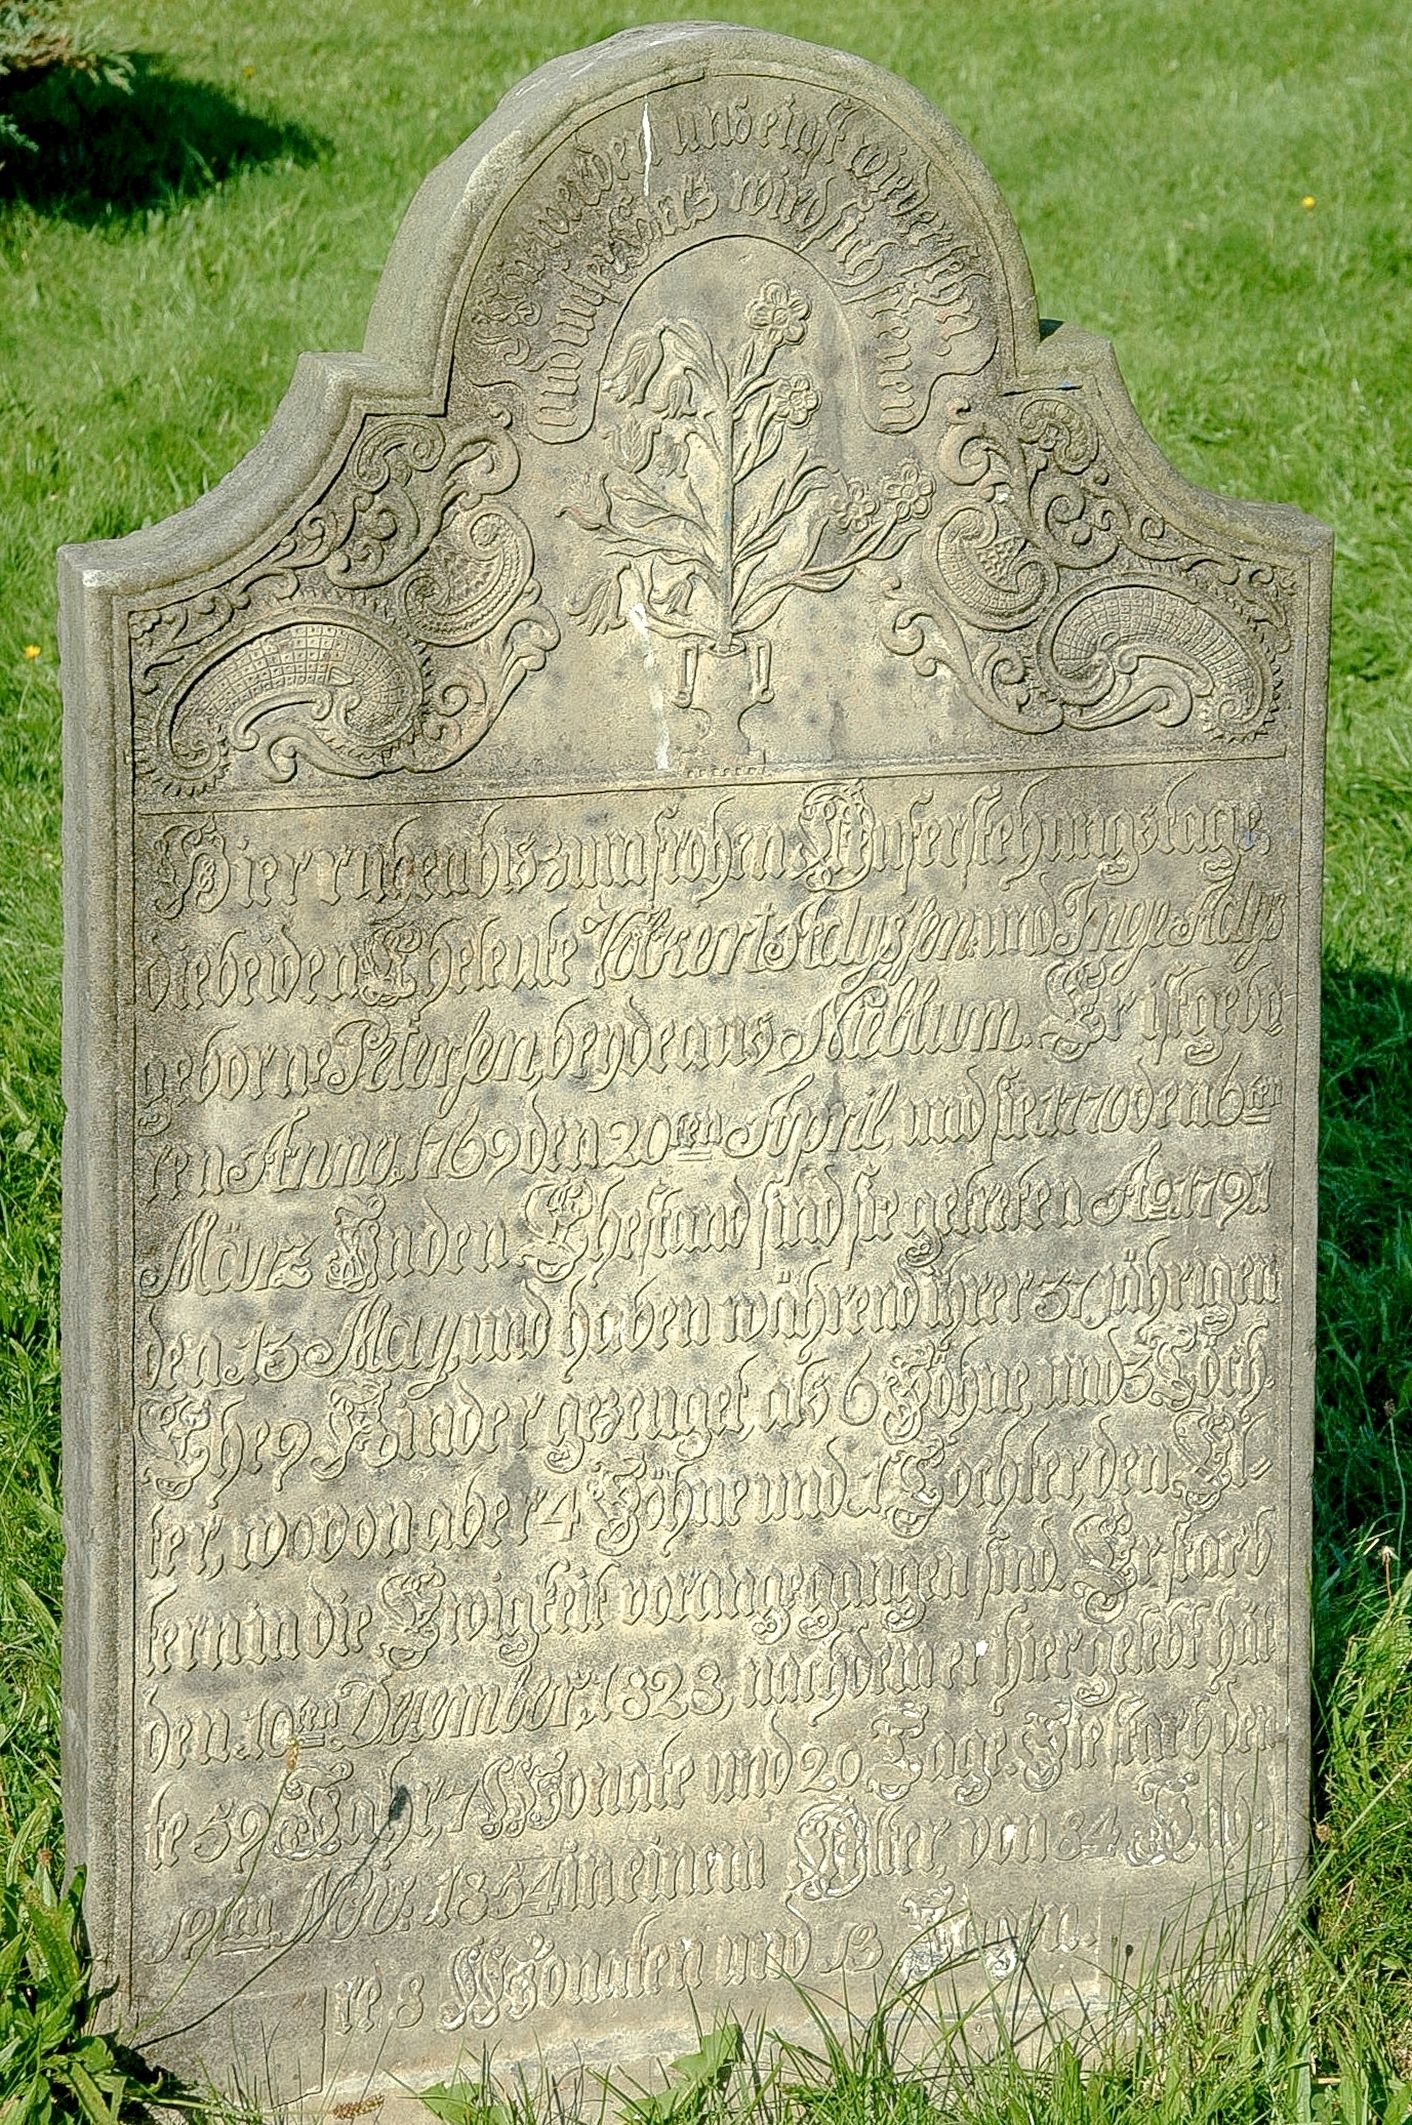 Wir werden uns einst wieder sehn
und unser Herz wird sich freuen
Hier ruhen bis zum frohen Auferstehungstage,
die beiden Eheleute Volkert Adyssen. und Inge Adys
geborne Petersen, beyde aus Nieblum. Er ist gebo
ren Anno. 1769 den 20ten April, und sie 1770 den 6ten
März In den Ehestand sind sie getreten Ao. 1791
den 13 May, und haben während ihrer 37 jährigen
Ehe 9 Kinder gezeuget, als 6 Söhne, und 3 Töch
ter, wovon aber 4 Söhne und 1 Tochter, den El-
tern in die Ewigkeit vorangegangen sind. Er starb
den 10ten December, 1828, nachdem er hier gelebt hat
te 59 Jahr 7 Monate und 20 Tage. Sie starb den
19ten Nov: 1854 in einem Alter, von 84 Jah
re 8 Monaten und 13 Tagen.